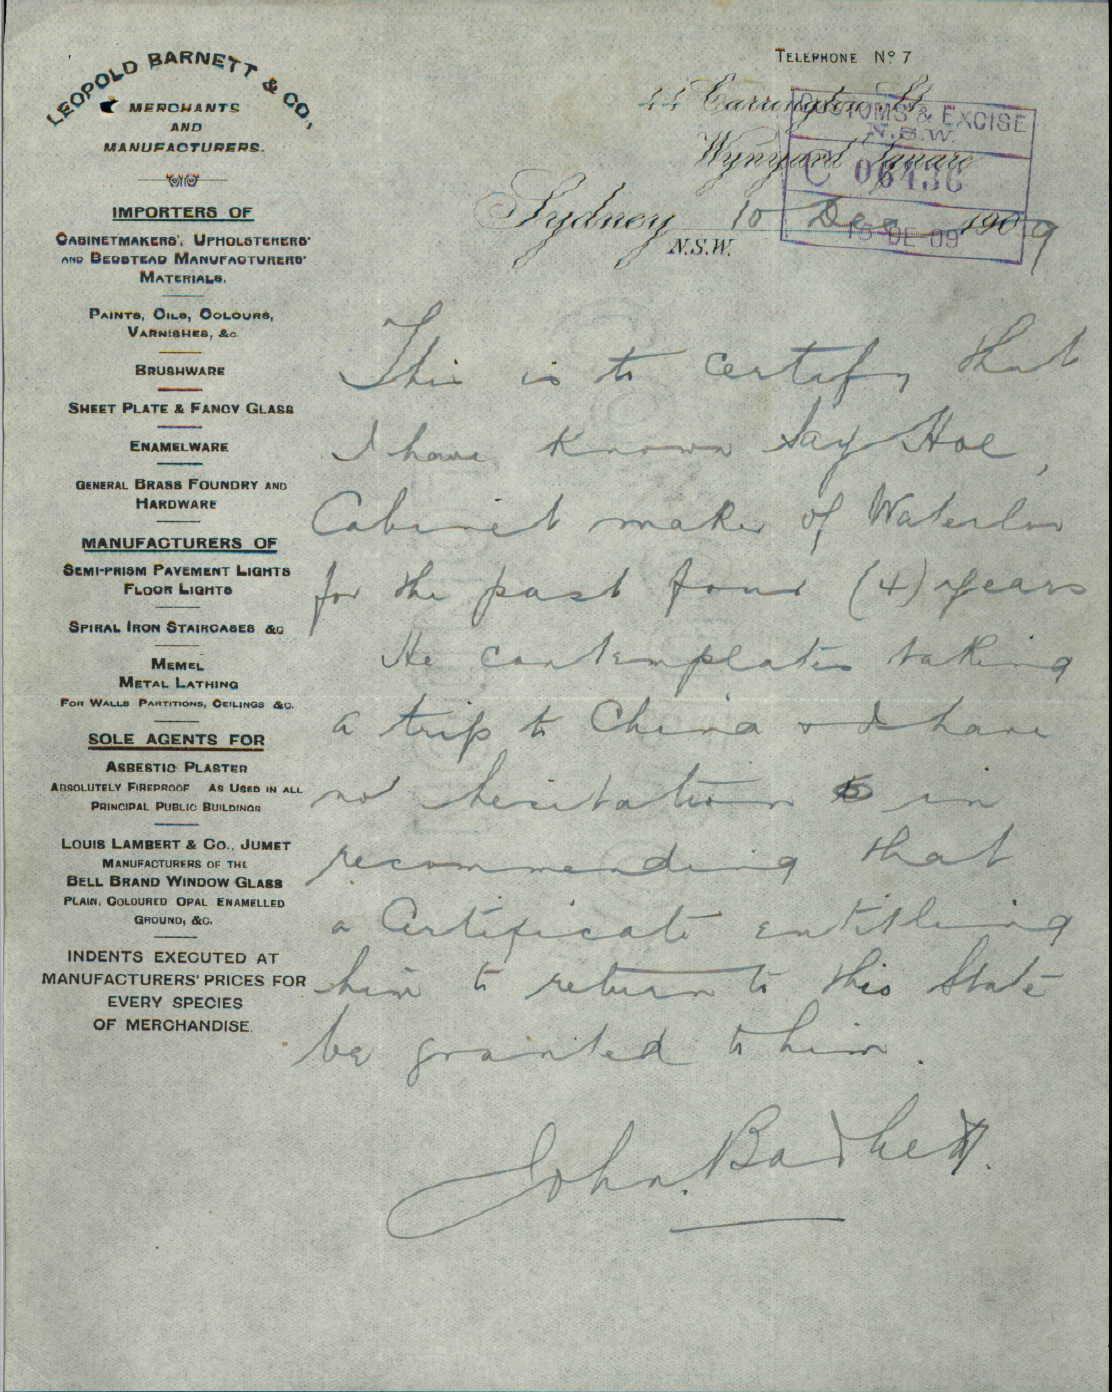 LEOPOLD BARNETT & CO,
MERCHANTS
AND
MANUFACTURERS.
IMPORTERS OF
CABINETMAKERS', UPHOLSTERERS'
AND BEDSTEAD MANUFACTURERS'
MATERIALS.
PAINTS, OILS, COLOURS,
VARNISHES, &c
BRUSHWARE
SHEET PLATE & FANCY GLASS
ENAMELWARE
GENERAL BRASS FOUNDRY AND
HARDWARE
MANUFACTURERS OF
SEMI-PRISM PAVEMENT LIGHTS
FLOOR LIGHTS
SPIRAL IRON STAIRCASES &C
MEMEL
METAL LATHING
FOR WALLS PARTITIONS, CEILINGS &C.
SOLE AGENTS FOR
ASBESTIC PLASTER
ABSOLUTELY FIREPROOF AS USED IN ALL
PRINCIPAL PUBLIC BUILDINGS
LOUIS LAMBERT & CO., JUMET
MANUFACTURERS OF THE
BELL BRAND WINDOW GLASS
PLAIN, COLOURED OPAL ENAMELLED
GROUND, &C.
INDENTS EXECUTED AT
MANUFACTURERS' PRICES FOR
EVERY SPECIES
OF MERCHANDISE.
TELEPHONE No 7
44 Carrington St
Wynyard Square
Sydney 10 Dec 1909
N.S.W.
CUSTOMS & EXCISE
N.S.W.
C 06436
DE 09
This is to certify that
I have known Say Hoe,
Cabinet maker of Waterloo
for the past four (4) years
He contemplates taking
a trip to China & I have
no hesitation in
recommending that
a Certificate entitleing
him to return to this State
be granted to him.
John